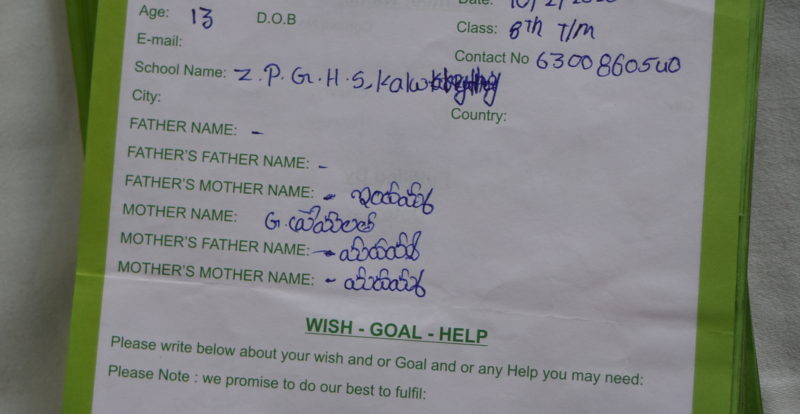 Age: 13 D.O.B
Class: 8th T/M
E-mail:
Contact No 6300860540
School Name: Z.P.G.H.S, Kalw
City:
Country:
FATHER NAME: -
FATHER'S FATHER NAME: -
FATHER'S MOTHER NAME: -
MOTHER NAME: G.
MOTHER'S FATHER NAME: -
MOTHER'S MOTHER NAME: -
WISH - GOAL - HELP
Please write below about your wish and or Goal and or any Help you may need:
Please Note : we promise to do our best to fulfil: